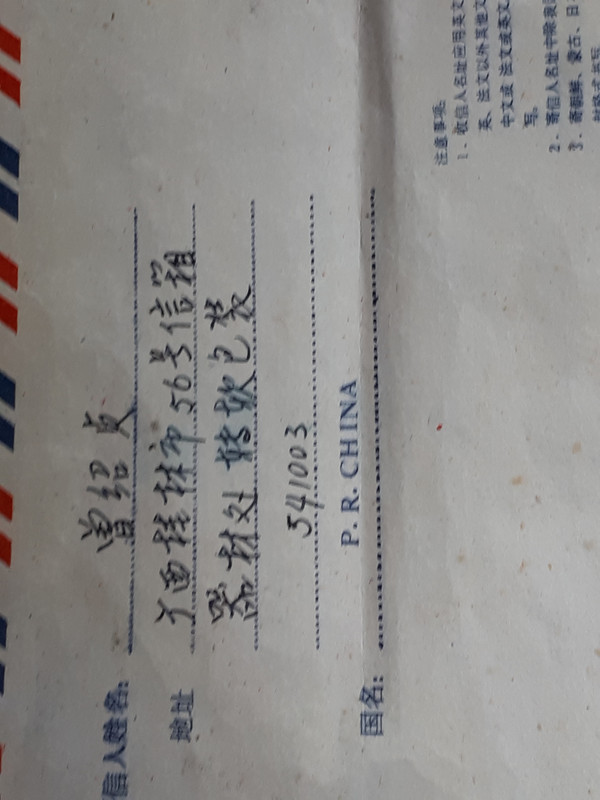 信人姓名: 曾绍贞
地址 广西桂林市56号信箱
器材处 转软包装
541003
P. R. CHINA
国名:
注意事项:
1、收信人名址应用英文
英、法文以外其他文
中文或 法文或英文
写。
2、寄信人名址中除我国
3、寄朝鲜、蒙古、日